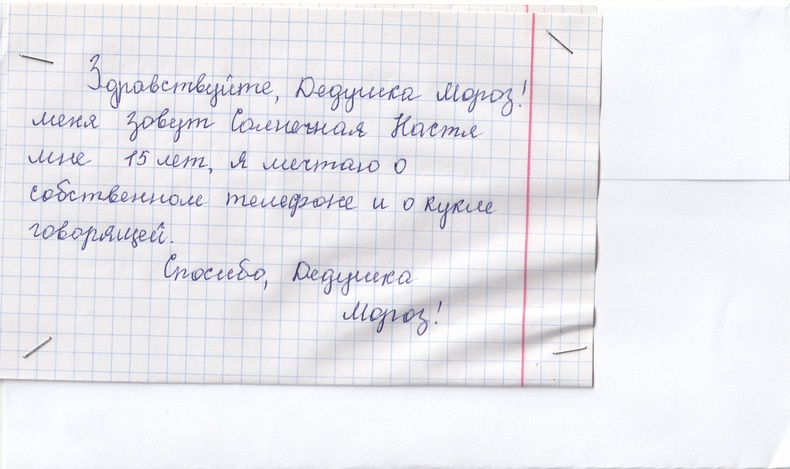 Здравствуйте, Дедушка Мороз!
меня зовут Солнечная Настя
мне 15 лет, я мечтаю о
собственном телефоне и о кукле
говорящей.
Спосибо, Дедушка
Мороз!